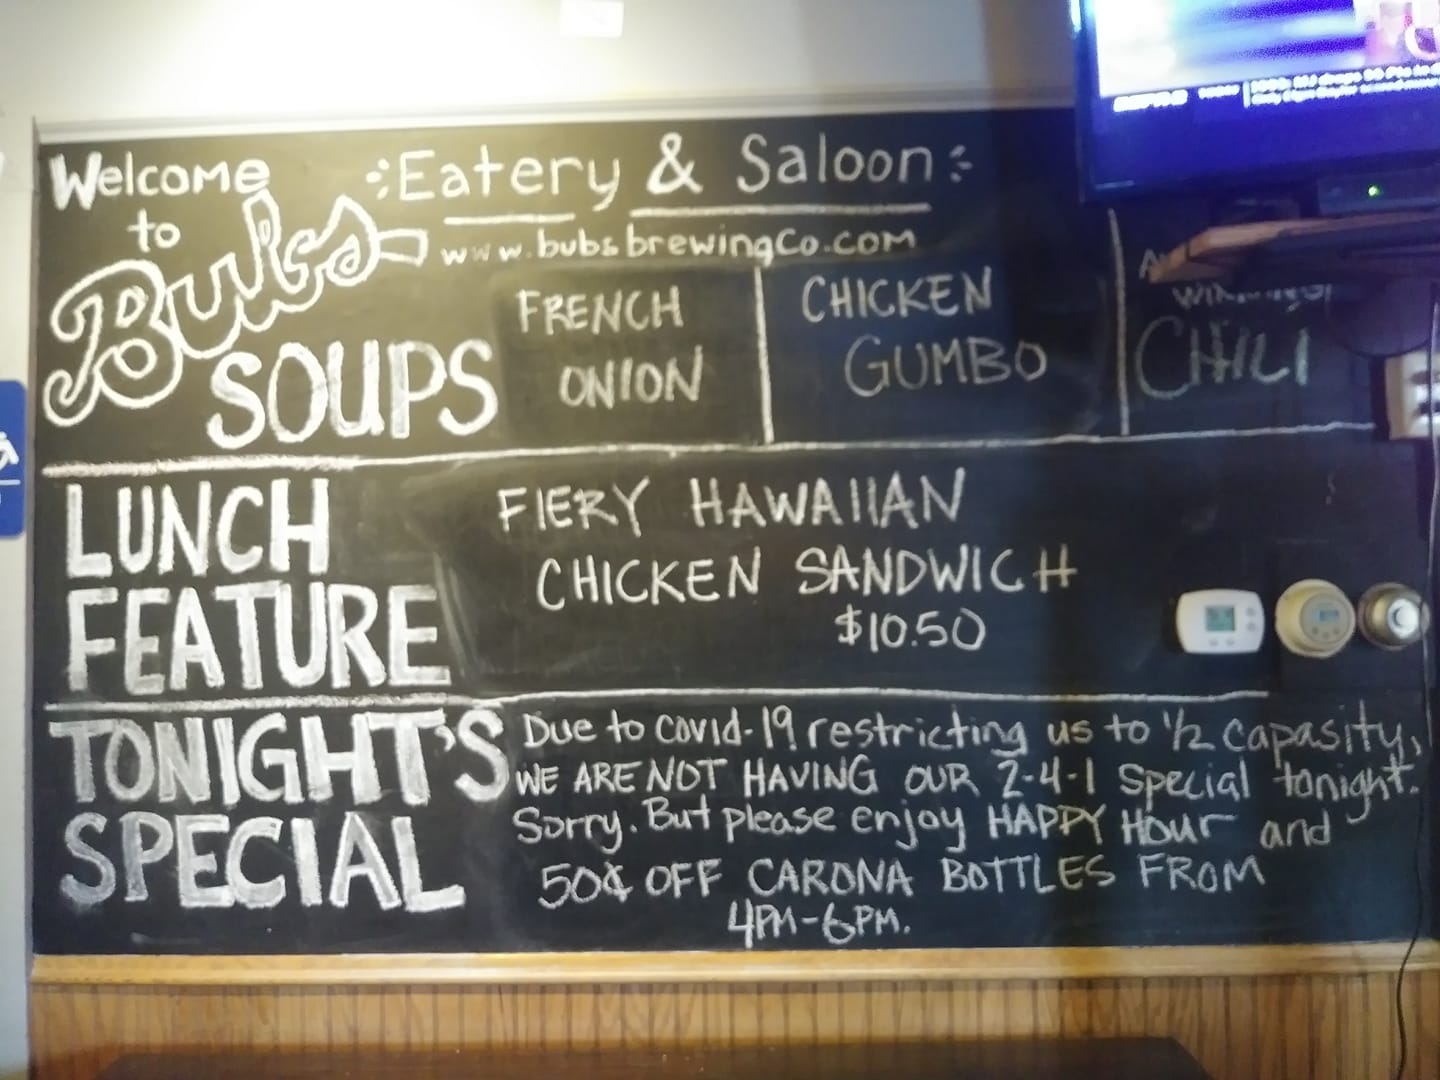 Welcome
to
Bub's
Eatery & Saloon
www.bubsbrewingCo.com
SOUPS
FRENCH
ONION
CHICKEN
GUMBO
CHILI
LUNCH
FEATURE
FIERY HAWAIIAN
CHICKEN SANDWICH
$10.50
TONIGHT'S
SPECIAL
Due to Covid-19 restricting us to 1/2 capasity,
WE ARE NOT HAVING OUR 2-4-1 Special tonight.
Sorry. But please enjoy HAPPY Hour and
50¢ OFF CARONA BOTTLES FROM
4PM-6PM.